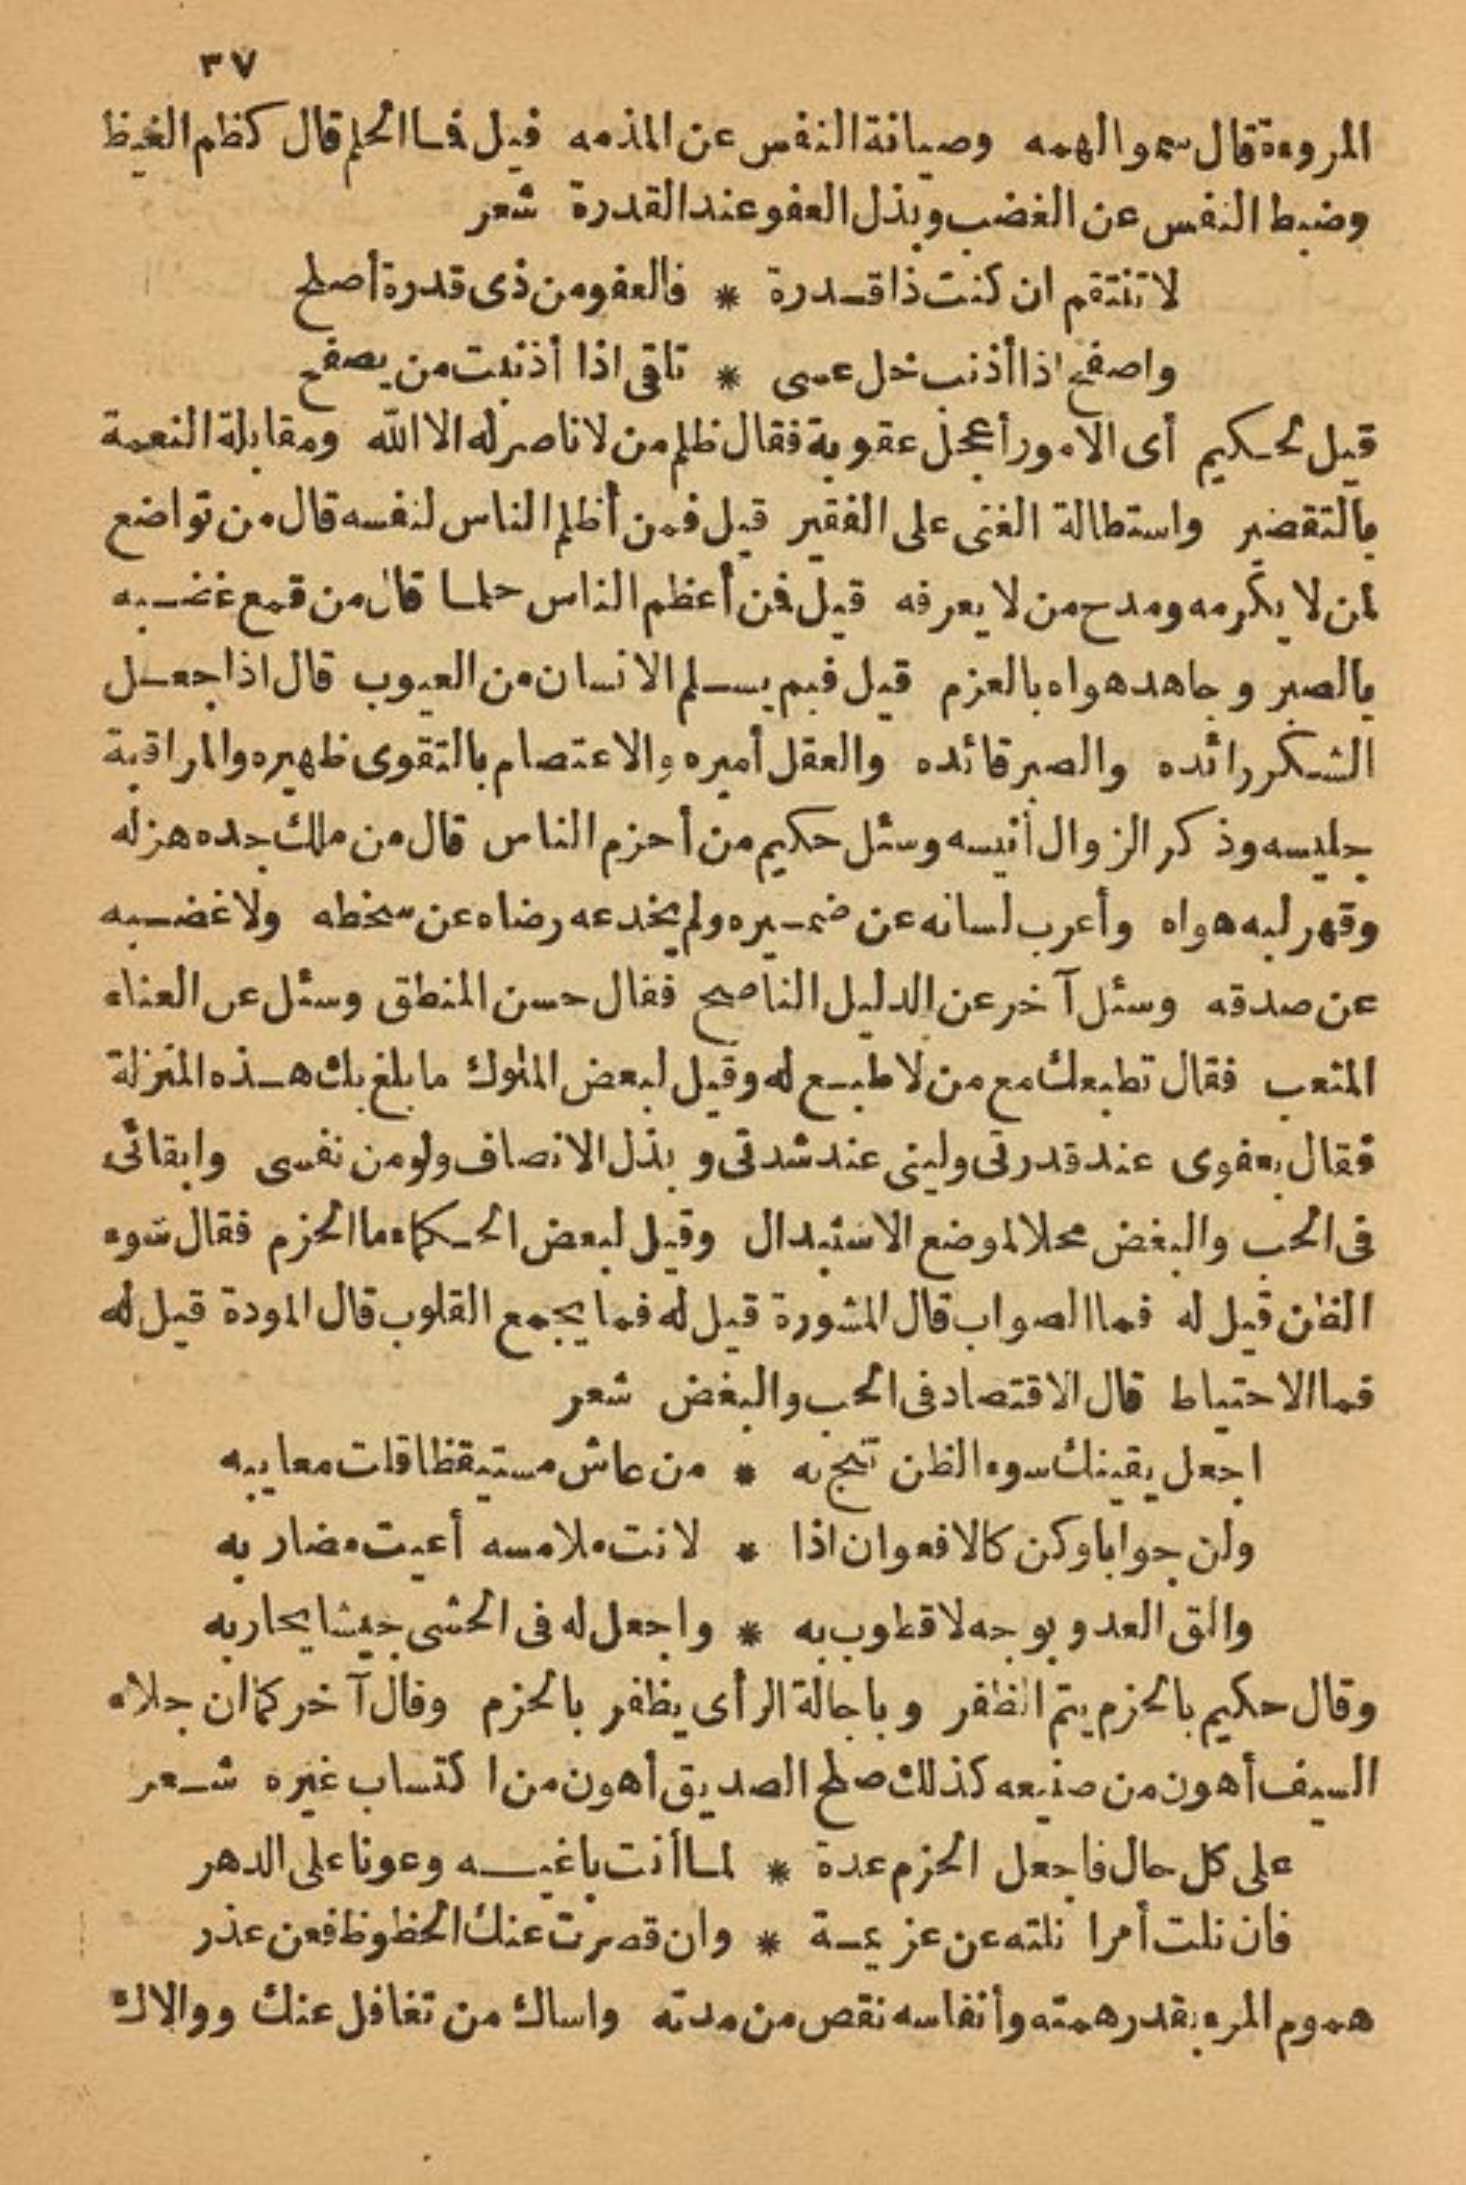 ٣٧
المروءة قال سمو الهمه وصيانة النفس عن المذمه قيل فما الحلم قال كظم الغيظ
وضبط النفس عن الغضب وبذل العفو عند القدرة شعر
لا تنتقم ان كنت ذا قدرة * فالعفو من ذى قدرة أصلح
واصفح اذا أذنب خل عسى * تلقى اذا أذنبت من يصفح
قيل لحكيم أى الأمور أعجل عقوبة فقال ظلم من لا ناصر له الا الله ومقابلة النعمة
بالتقصير واستطالة الغنى على الفقير قيل فمن أظلم الناس لنفسه قال من تواضع
لمن لا يكرمه ومدح من لا يعرفه قيل فمن أعظم الناس حلما قال من قمع غضبه
بالصبر وجاهد هواه بالعزم قيل فبم يسلم الانسان من العيوب قال اذا جعل
الشكر رائده والصبر قائده والعقل أميره والاعتصام بالتقوى ظهيره والمراقبة
جليسه وذكر الزوال أنيسه وسئل حكيم من أحزم الناس قال من ملك جده هزله
وقهر لبه هواه وأعرب لسانه عن ضميره ولم يخدعه رضاه عن سخطه ولا غضبه
عن صدقه وسئل آخر عن الدليل الناصح فقال حسن المنطق وسئل عن العناء
المتعب فقال تطبعك مع من لا طبع له وقيل لبعض الملوك ما بلغ بك هذه المنزلة
فقال بعفوى عند قدرتى ولينى عند شدتى وبذل الانصاف ولو من نفسى وابقائى
فى الحب والبغض محلا لموضع الاستبدال وقيل لبعض الحكماء ما الحزم فقال سوء
الظن قيل له فما الصواب قال المشورة قيل له فما يجمع القلوب قال المودة قيل له
فما الاحتياط قال الاقتصاد فى الحب والبغض شعر
اجعل يقينك سوء الظن تنج به * من عاش مستيقظا قلت معايبه
ولن جوابا وكن كالافعوان اذا * لانت ملامسه أعيت مضاربه
والق العدو بوجه لا قطوب به * واجعل له فى الحشى جيشا يحاربه
وقال حكيم بالحزم يتم الظفر وباجالة الرأى يظفر بالحزم وقال آخر كما ان جلاء
السيف أهون من صنيعه كذلك صلح الصديق أهون من اكتساب غيره شعر
على كل حال فاجعل الحزم عدة * لما أنت باغيه وعونا على الدهر
فان نلت أمرا نلته عن عزيمة * وان قصرت عنك الحظوظ فعن عذر
هموم المرء بقدر همته وأنفاسه نقص من مدته واساك من تغافل عنك ووالاك